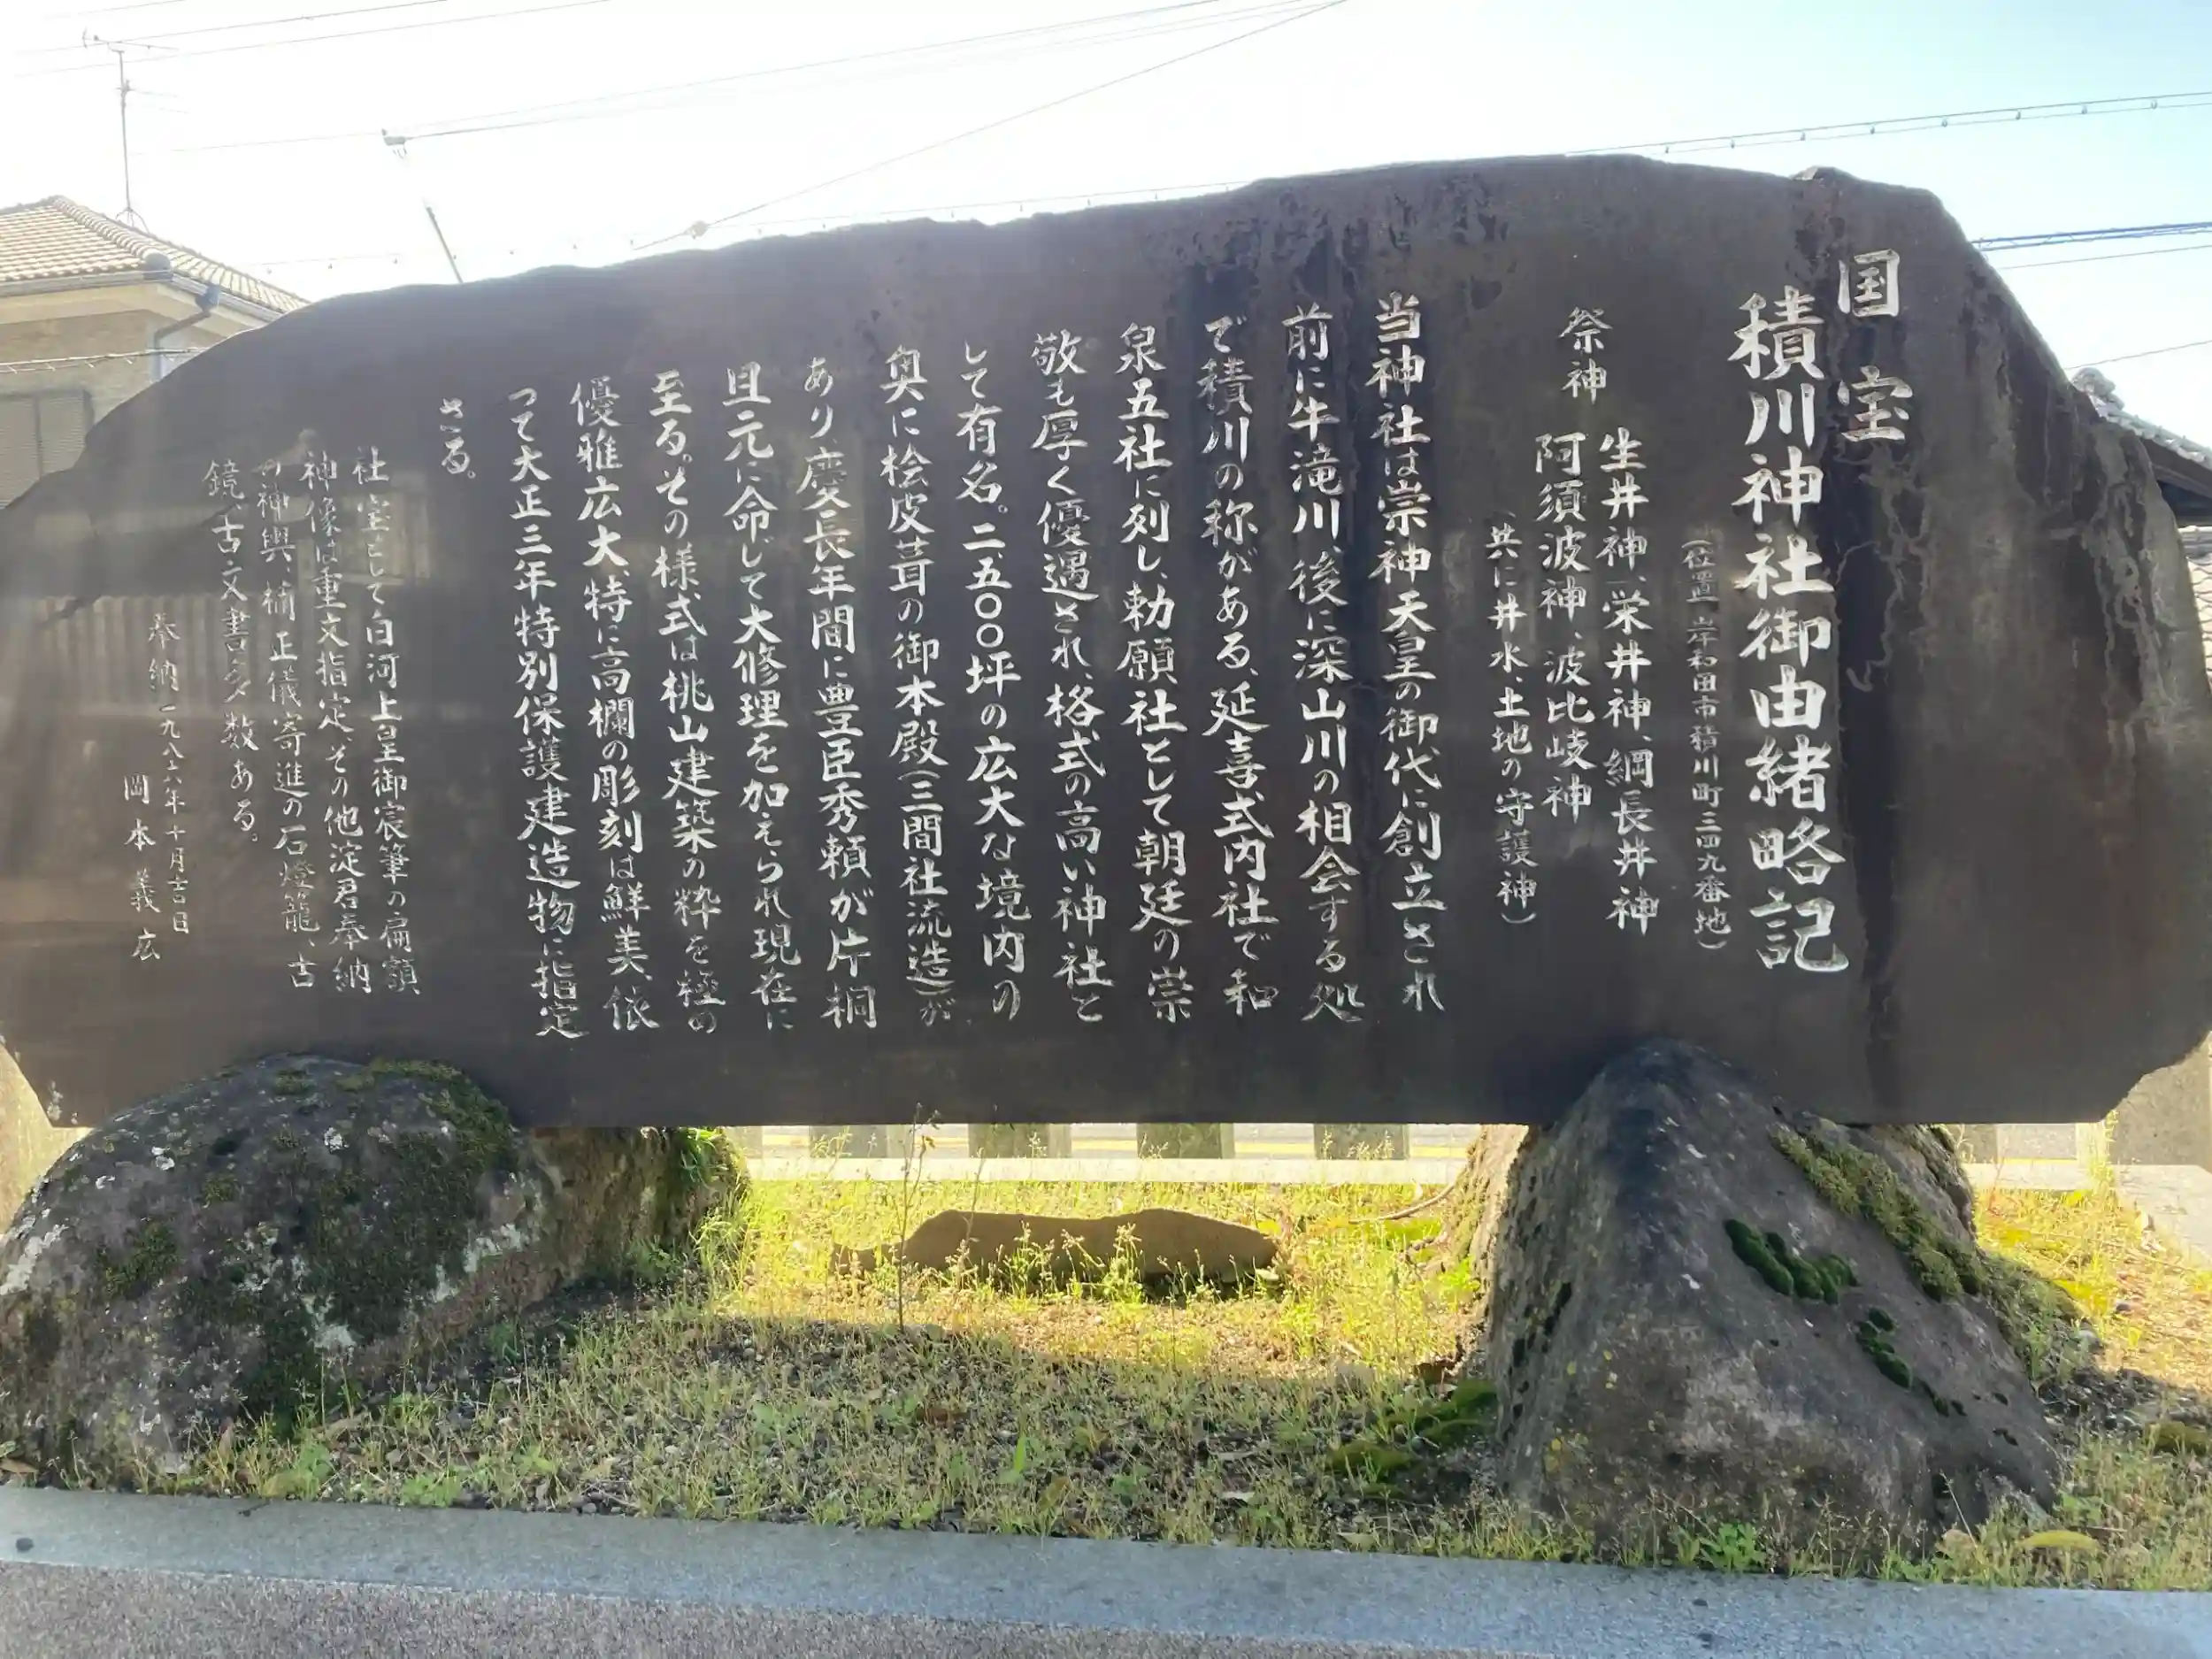 国宝
積川神社御由緒略記
(位置 岸和田市積川町三四九番地)
祭神
生井神、栄井神、綱長井神
阿須波神、波比岐神
(共に井水、土地の守護神)
当神社は崇神天皇の御代に創立され
前に牛滝川、後に深山川の相会する処
で積川の称がある、延喜式内社で和
泉五社に列し、勅願社として朝廷の崇
敬も厚く優遇され、格式の高い神社と
して有名。二、五〇〇坪の広大な境内の
奥に桧皮葺の御本殿(三間社流造)が
あり、慶長年間に豊臣秀頼が片桐
且元に命じて大修理を加えられ現在に
至る。その様式は桃山建築の粋を極め
優雅広大、特に高欄の彫刻は鮮美、依
つて大正三年特別保護建造物に指定
さる。
社宝として白河上皇御宸筆の扁額
神像は重文指定、その他淀君奉納
の神輿、楠正儀寄進の石燈籠、古
鏡、古文書多数ある。
奉納 一九八六年十月吉日
岡本義広